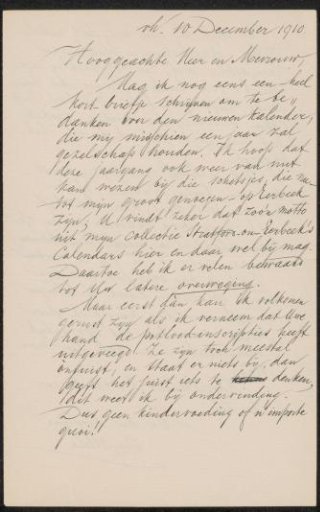 vh. 10 December 1910.
Hooggeachte Heer en Mevrouw,
Mag ik nog eens een heel
kort briefje schrijven om te be„
danken voor den nieuwen kalender,
die mij misschien een jaar zal
gezelschap houden. Ik hoop dat
deze jaargang ook weer van nut
kan wezen bij die schetsjes, die nu
tot mijn groot genoegen op Eerbeek
zijn; U vindt zeker dat zoo'n motto
uit mijn collectie Stratford-on-Eerbeek's
Calendars hier en daar wel bij mag.
Daartoe heb ik er velen bewaard
tot Uw latere overweging.
Maar eerst dan kan ik volkomen
gerust zijn als ik verneem dat Uwe
hand de potlood-inscripties heeft
uitgeveegd. Ze zijn toch meestal
onjuist, en staat er niets bij, dan
geeft het juist iets te denken,
dit weet ik bij ondervinding.
Dus geen kindervoeding of n'importe
quoi!!